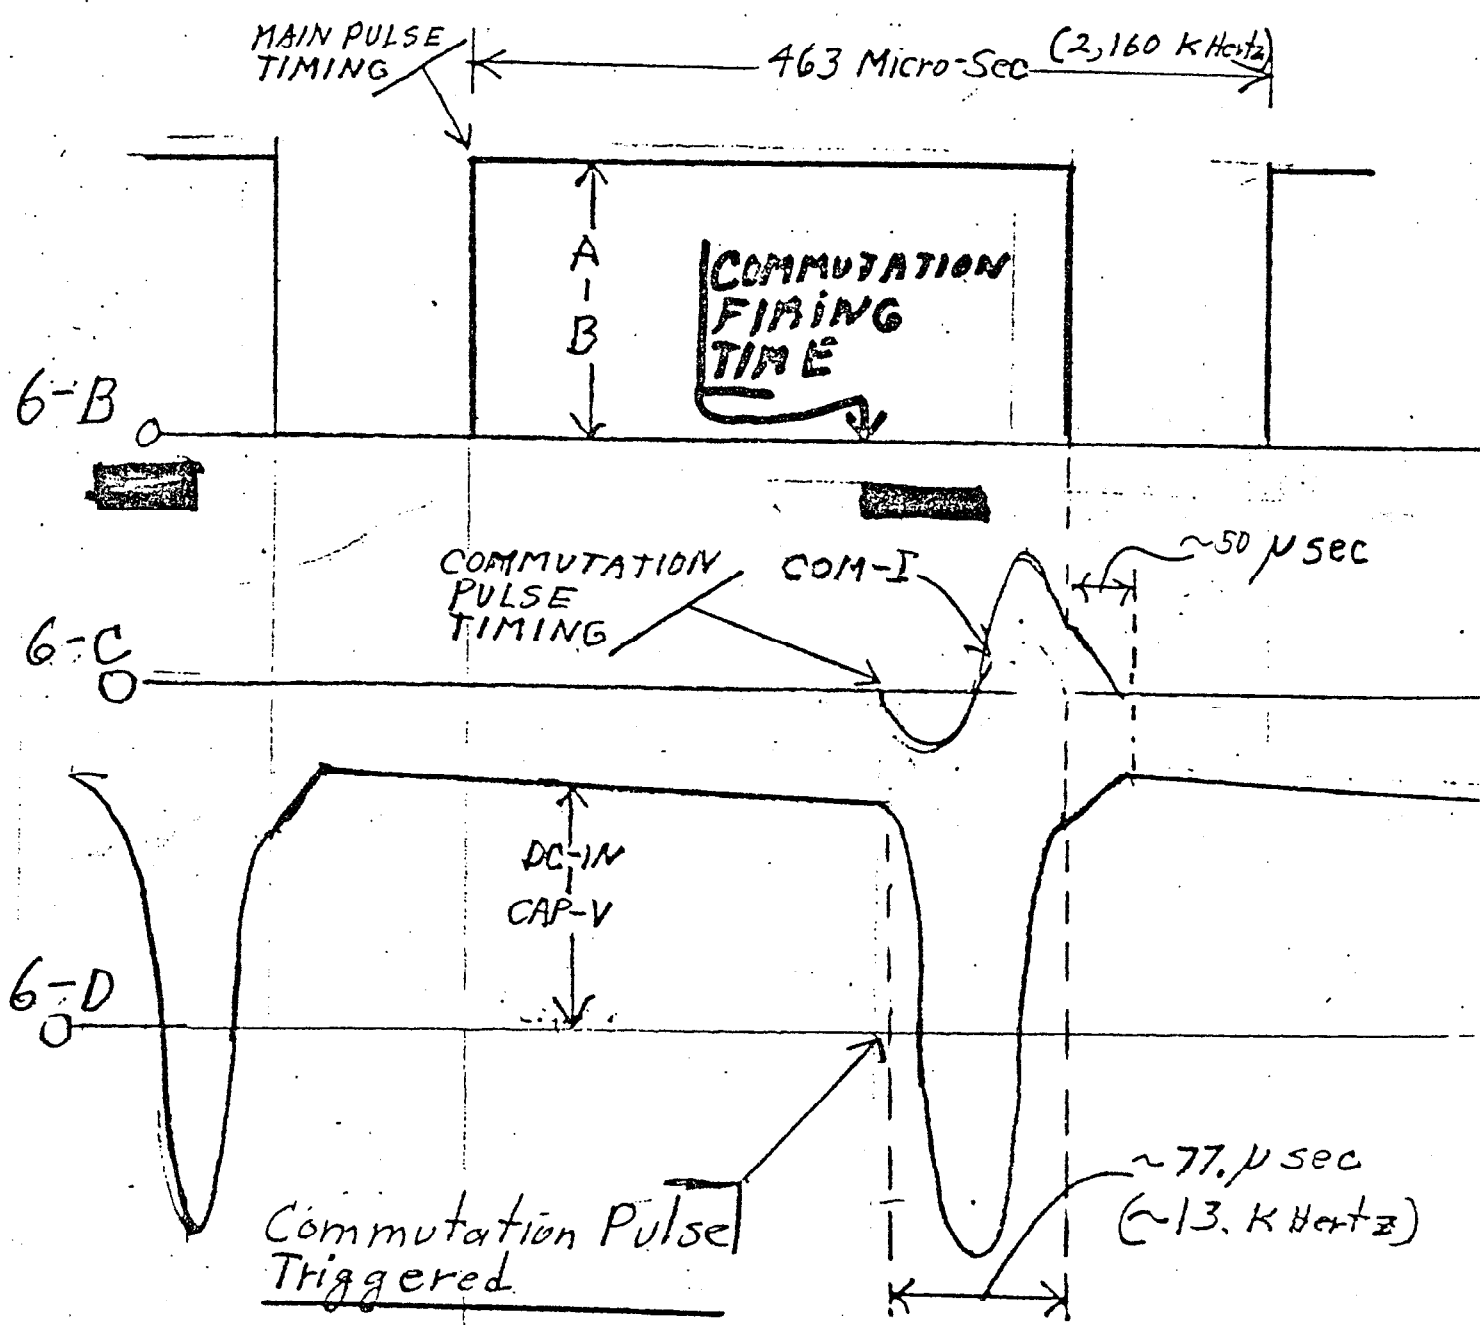 MAIN PULSE
TIMING
463 Micro-Sec (2,160 K Hertz)
A
B
COMMUTATION
FIRING
TIME
6-B
O
COMMUTATION
PULSE
TIMING
COM-I
~50 μ sec
6-C
O
DC-IN
CAP-V
6-D
O
Commutation Pulse
Triggered
~77. μ sec
(~13. K Hertz)